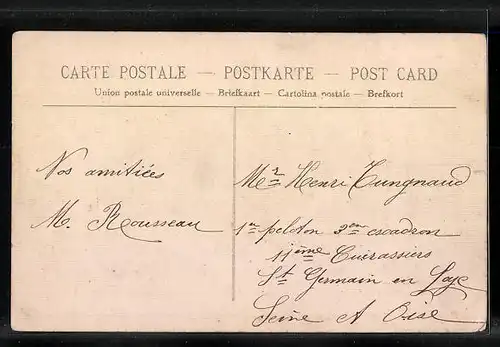 CARTE POSTALE — POSTKARTE — POST CARD
Union postale universelle — Briefkaart — Cartolina postale — Brefkort
Nos amitiées
M. Rousseau
Mr Henri Tungnaud
1er peloton 2em escadron
11ème Cuirassiers
St Germain en Laye
Seine et Oise